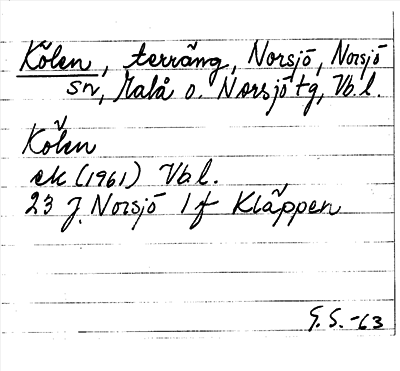 Kölen, terräng, Norsjö, Norsjö
sn, Malå o. Norsjö tg, Vb.l.
Kölen
ek (1961) Vb.l.
23 J. Norsjö 1 f Kläppen
G. S. -63